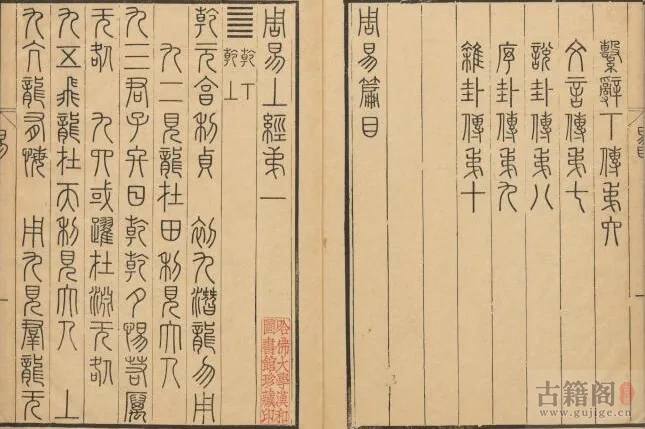 繫辭下傳弟六
文言傳弟七
說卦傳弟八
序卦傳弟九
雜卦傳弟十
周易篇目
周易上經弟一
乾下
乾上
乾元亨利貞 初九潛龍勿用
九二見龍在田利見大人
九三君子終日乾乾夕惕若厲
无咎 九四或躍在淵无咎
九五飛龍在天利見大人 上
九亢龍有悔 用九見羣龍无
哈佛大學漢和
圖書館珍藏印
古籍阁
www.gujige.cn